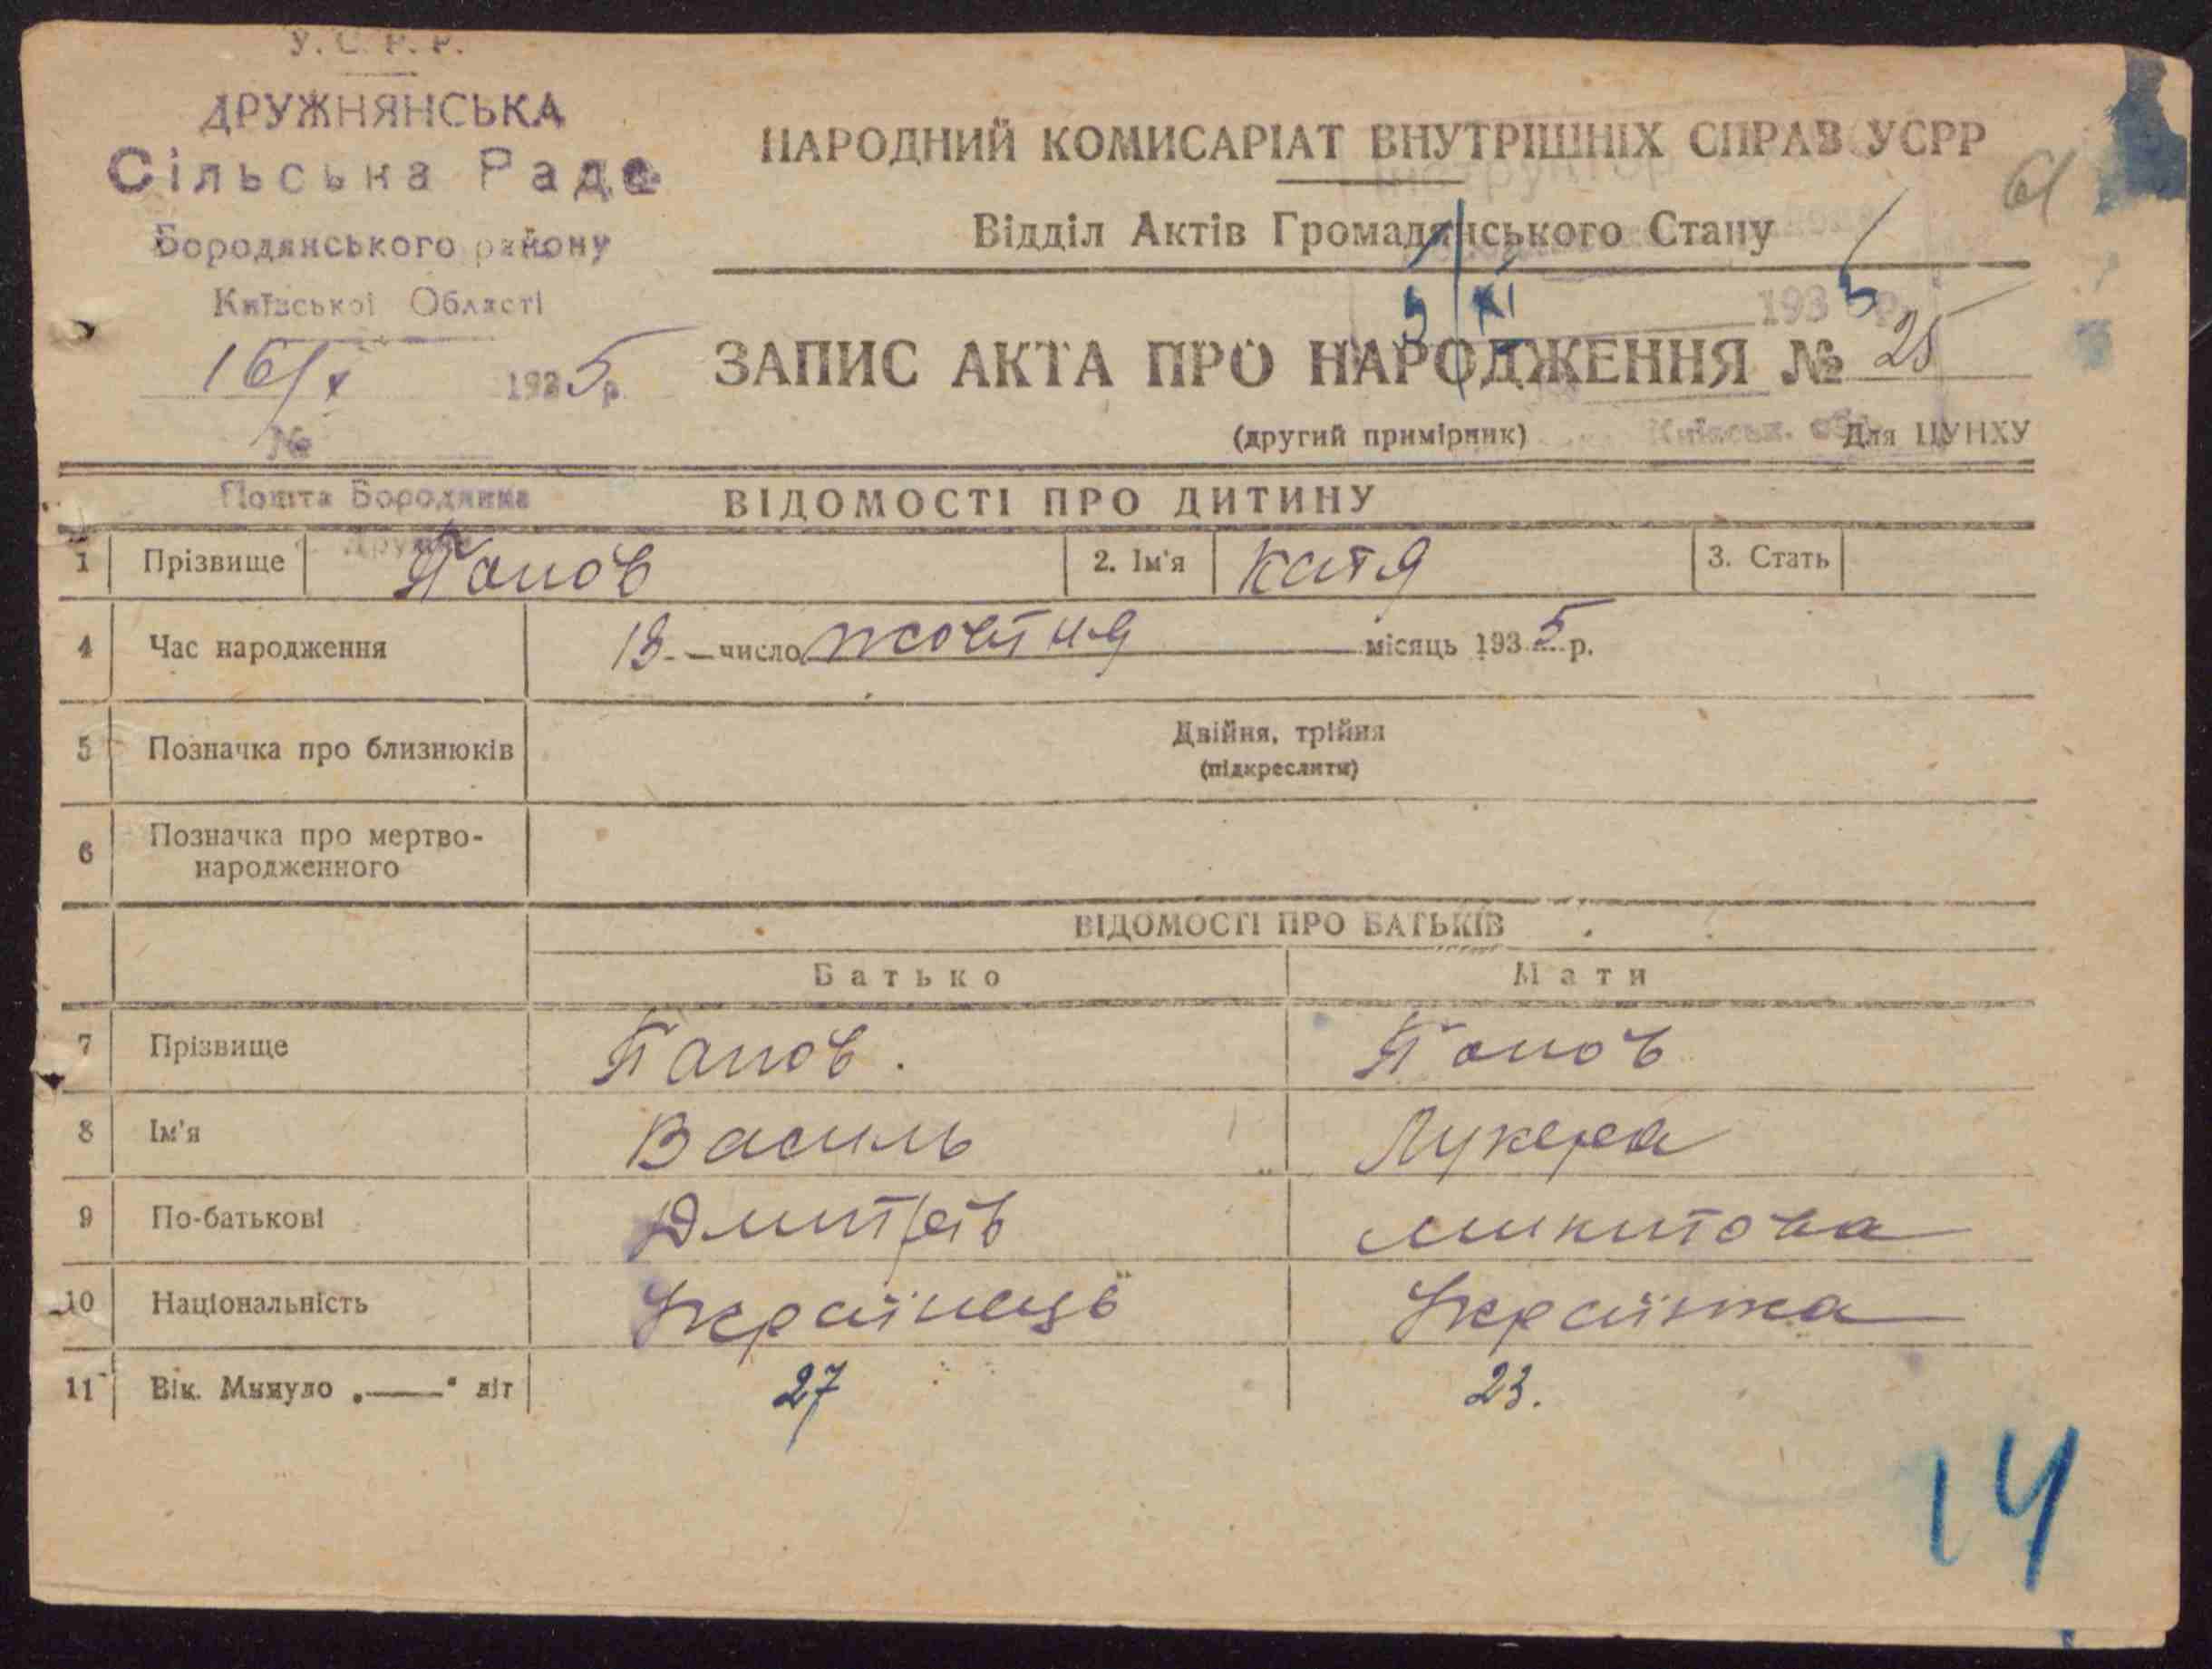 У. С. Р. Р.
ДРУЖНЯНСЬКА
Сільська Рада
Бородянського району
Київської Області
16/X 1935 р.
№
Пошта Бородянка
НАРОДНИЙ КОМИСАРІАТ ВНУТРІШНІХ СПРАВ УСРР
61
Відділ Актів Громадянського Стану
5/XI 1935 р.
ЗАПИС АКТА ПРО НАРОДЖЕННЯ № 25
(другий примірник) Київськ. Для ЦУНХУ
ВІДОМОСТІ ПРО ДИТИНУ
1 Прізвище Попов 2. Ім'я Катя 3. Стать
4 Час народження 13 число жовтня місяць 1935 р.
5 Позначка про близнюків Двійня, трійня
(підкреслити)
6 Позначка про мертво-
народженного
ВІДОМОСТІ ПРО БАТЬКІВ
Батько Мати
7 Прізвище Попов. Попов
8 Ім'я Василь Лукера
9 По-батькові Дмитрів микитова
10 Національність Українець Українка
11 Вік. Минуло „——“ літ 27 23.
14